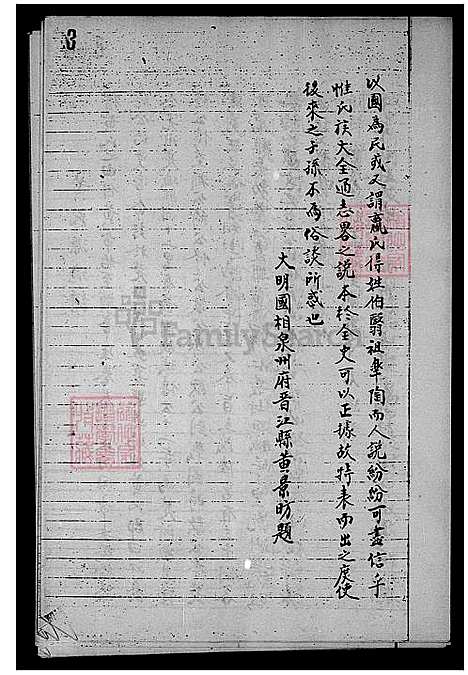 以國為氏或又謂嬴氏得姓伯翳祖皋陶而人說紛紛可盡信乎
惟氏族大全通志畧之說本於全史可以正據故特表而出之庶使
後來之子孫不為俗談所惑也
大明國相泉州府晉江縣黃景昉題
3
FamilySearch